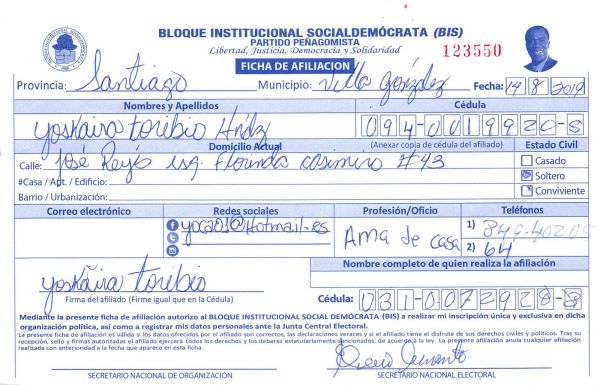 BLOQUE INSTITUCIONAL SOCIALDEMÓCRATA (BIS)
PARTIDO PEÑAGOMISTA
Libertad, Justicia, Democracia y Solidaridad
123550
FICHA DE AFILIACION
Provincia: Santiago Municipio: Villa González Fecha: 14/8/2019
Nombres y Apellidos Cédula
Yoskaira toribio Hndz 094-0019920-8
Domicilio Actual (Anexar copia de cédula del afiliado) Estado Civil
Calle: José Reyes esq. Florinda casimiro #43 Casado
#Casa / Apt. / Edificio: Soltero
Barrio / Urbanización: Conviviente
Correo electrónico Redes sociales Profesión/Oficio Teléfonos
yoca01@Hotmail.es Ama de casa 1) 849-40205
2) 64
Nombre completo de quien realiza la afiliación
yoskaira toribio
Firma del afiliado (Firme igual que en la Cédula) Cédula: 031-0072928-8
Mediante la presente ficha de afiliación autorizo al BLOQUE INSTITUCIONAL SOCIAL DEMÓCRATA (BIS) a realizar mi inscripción única y exclusiva en dicha
organización política, así como a registrar mis datos personales ante la Junta Central Electoral.
La presente ficha de afiliación es válida si los datos ofrecidos por el afiliado son correctos, las declaraciones veraces y si el afiliado tiene el disfrute de sus derechos civiles y políticos. Tras su
recepción, sello y firmas autorizadas el afiliado ejercerá todos los derechos y los deberes estatutariamente consignados, de acuerdo a la ley. La presente afiliación anula cualquier afiliación
realizada con anterioridad a la fecha que aparece en esta ficha.
SECRETARIO NACIONAL DE ORGANIZACIÓN SECRETARIO NACIONAL ELECTORAL